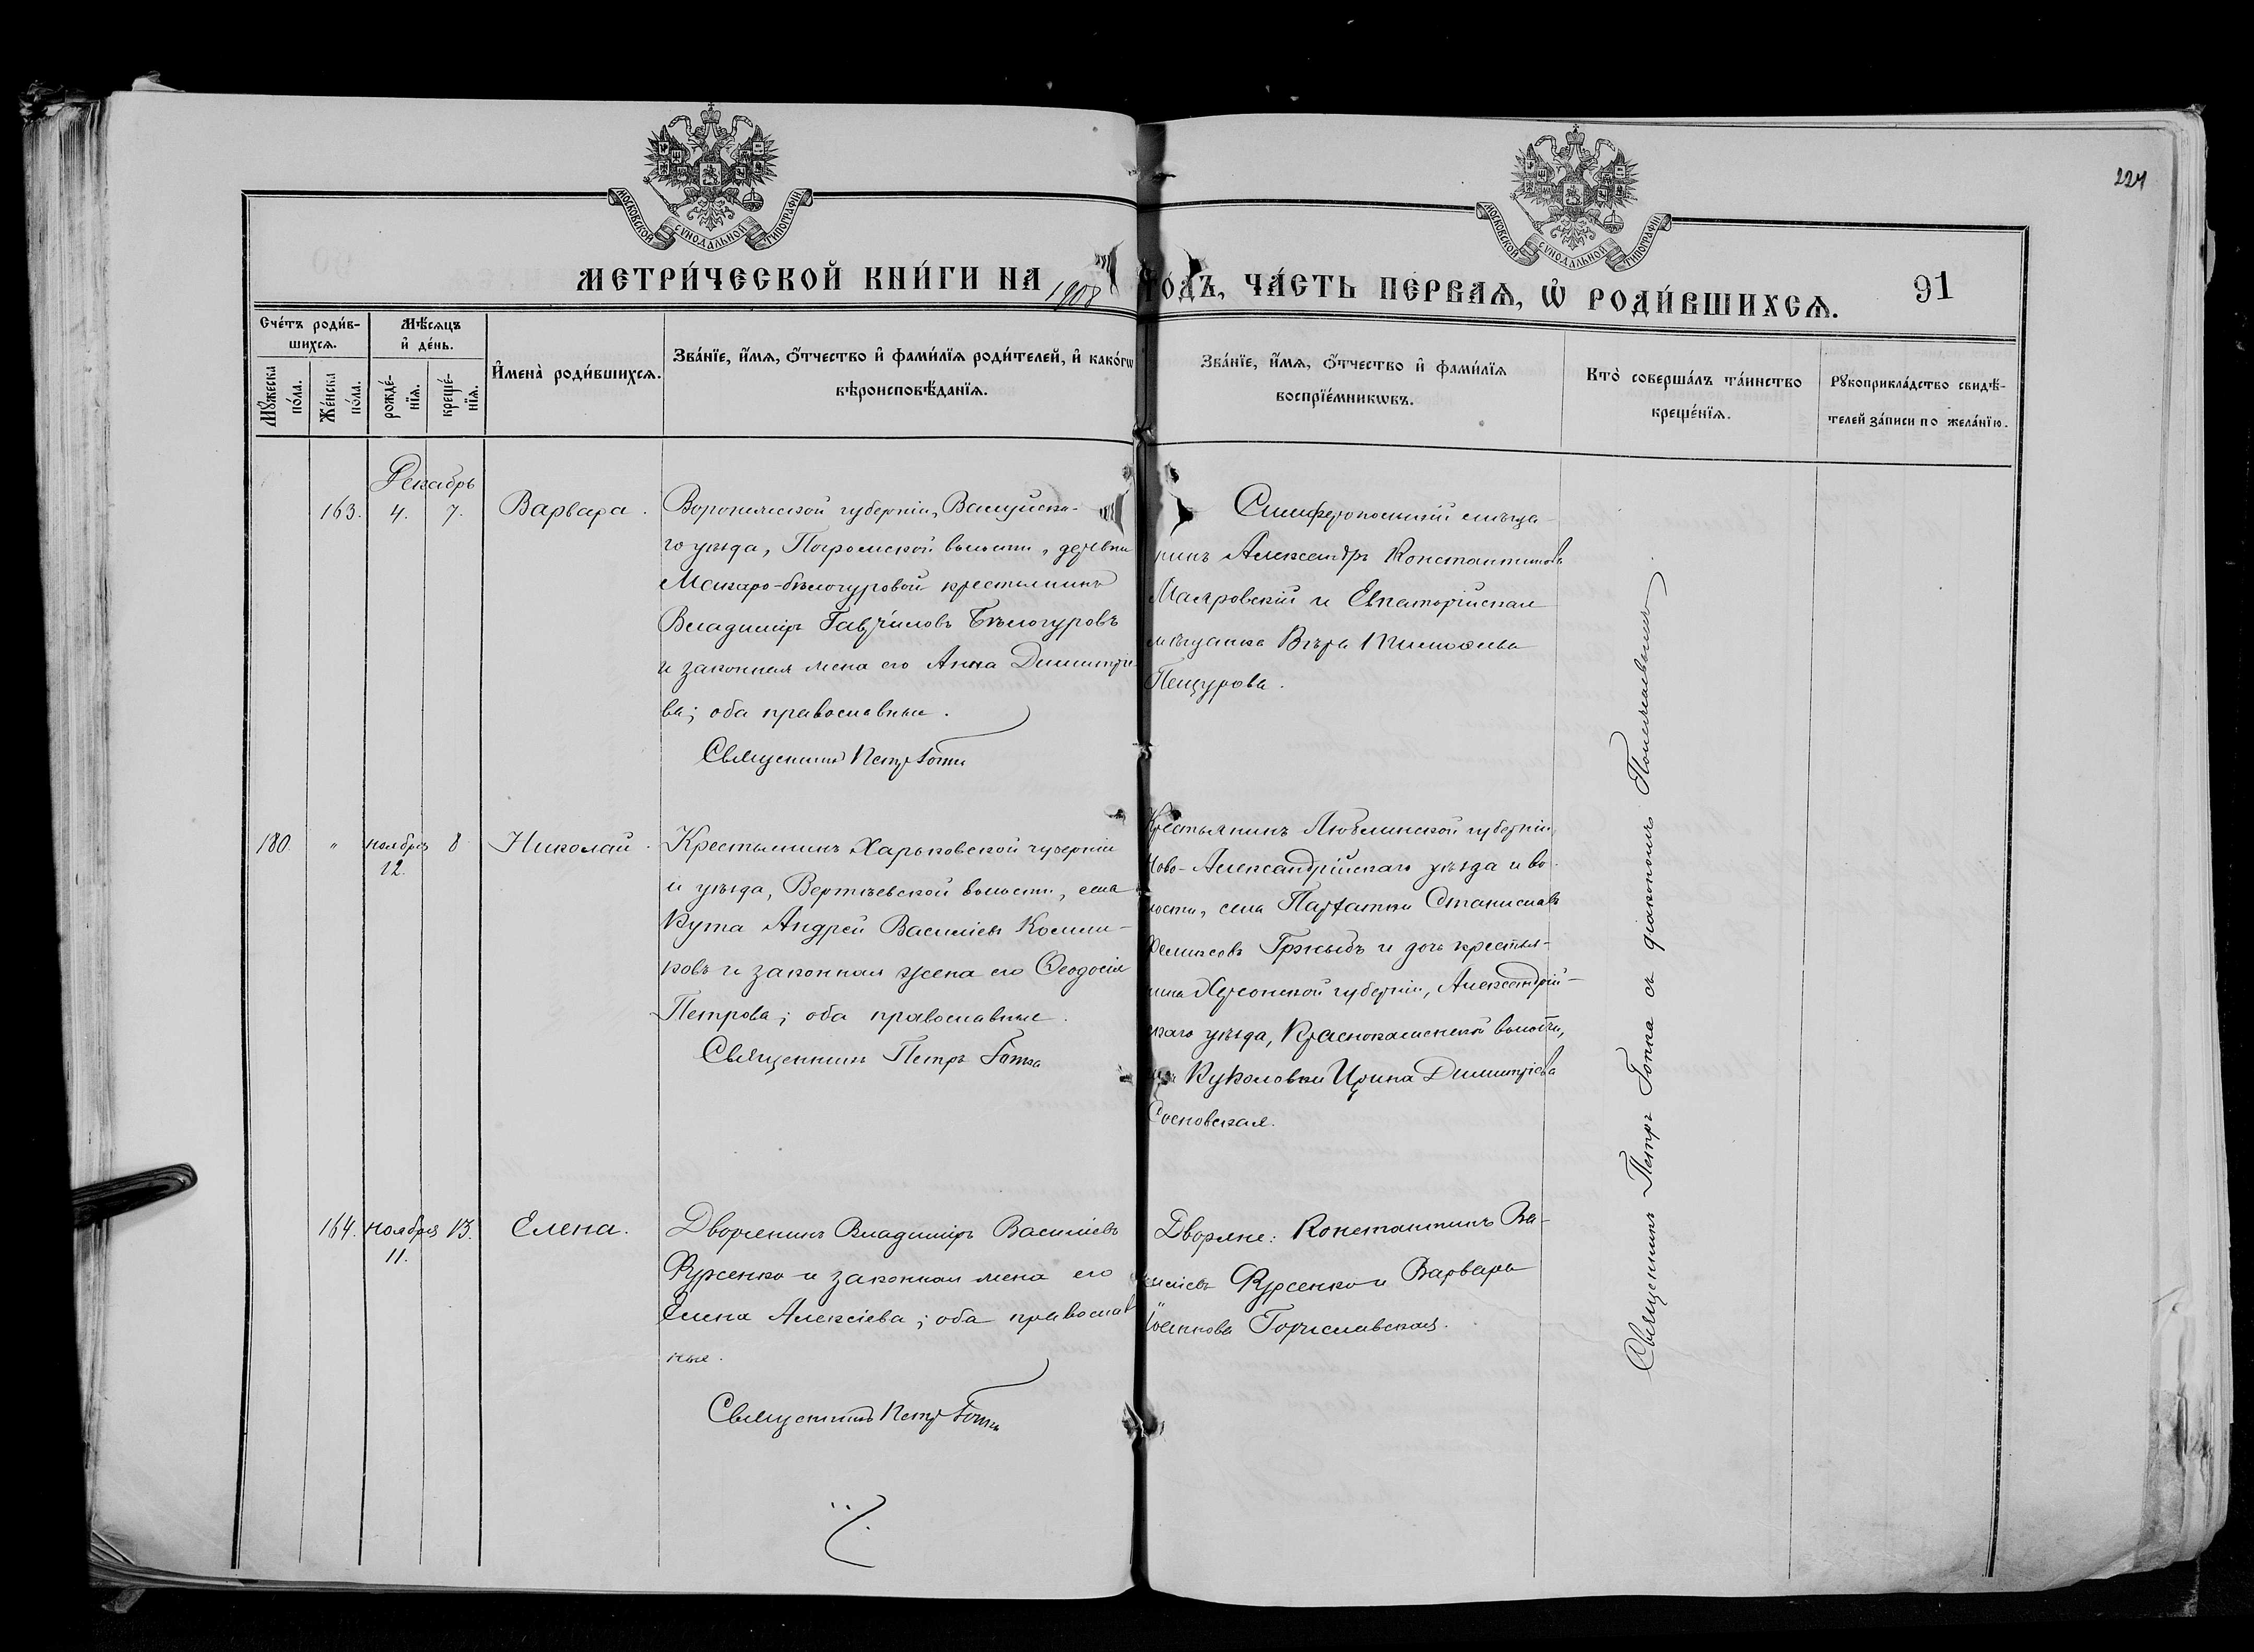 МОСКОВСКОЙ СѴНОДАЛЬНОЙ ТИПОГРАФІИ.
МОСКОВСКОЙ СѴНОДАЛЬНОЙ ТИПОГРАФІИ.
224
МЕТРИ́ЧЕСКОЙ КНИ́ГИ НА 1908
ГОДЪ, ЧА́СТЬ ПЕРВАѦ, Ѽ РОДИ́ВШИХСѦ.
91
Сче́тъ роди́в-
шихсѧ.
Мꙋ́жеска
по́ла.
Же́нска
по́ла.
Мѣ́сяцъ
и҆ де́нь.
рожде́-
нїѧ.
креще́-
нїѧ.
И҆мена̀ роди́вшихсѧ.
Зва́нїе, и҆́мѧ, ѻ҆́тчество и҆ фами́лїѧ роди́телей, и҆ како́гѡ
вѣроисповѣ́данїѧ.
Зва́нїе, и҆́мѧ, ѻ҆́тчество и҆ фами́лїѧ
воспрїе́мникѡвъ.
Кто̀ соверша́лъ та́инство
креще́нїѧ.
Рꙋкоприкла́дство свидѣ́-
телей за́писи по жела́нїю.
Декабрь
163. 4. 7. Варвара.
Воронежской губерніи, Валуйска-
го уѣзда, Погромской волости, деревни
Макаро-бѣлогуровой крестьянинъ
Владиміръ Гавріиловъ Бѣлогуровъ
и законная жена его Анна Димитріе-
ва; оба православные.
Священникъ Петръ
Симферопольскій мѣща-
нинъ Александръ Константиновъ
Маяровскій и Евпаторійская
мѣщанка Вѣра Тимоѳеева
Пещурова.
180. " ноября 8 Николай.
12.
Крестьянинъ Харьковской губерніи
и уѣзда, Вертѣевской волости, села
Кута Андрей Василіевъ
ковъ и законная жена его Ѳеодосія
Петрова; оба православные.
Священникъ Петръ
Крестьянинъ Люблинской губерніи,
Ново-Александрійскаго уѣзда и во-
лости, села Станиславъ
Феликсовъ и дочь крестья-
нина Херсонской губерніи, Александрій-
скаго уѣзда, Краснокаменской волости,
Куколовки Ирина Димитріева
Сосновская.
164. ноября 13. Елена.
11.
Дворянинъ Владиміръ Василіевъ
Фурсенко и законная жена его
Елена Алексіева; оба православ
ные.
Священникъ Петръ
Дворяне: Константинъ Ва-
силіевъ Фурсенко и Варвара
Іоаннова Гориславская.
Священникъ Петръ съ діакономъ